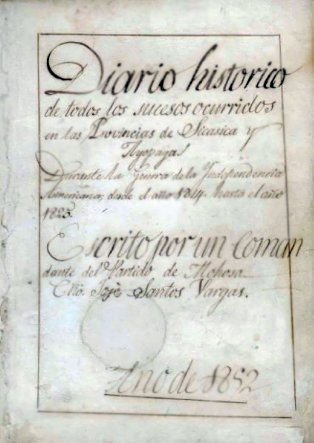 Diario historico
de todos los sucesos ocurridos
en las Provincias de Sicasica y
Ayopaya
Durante la Guerra de la Independencia
Americana, desde el año 1814 hasta el año
1825.
Escrito por un Coman
dante del Partido de Mohosa
Ctno. José Santos Vargas.
Año de 1852